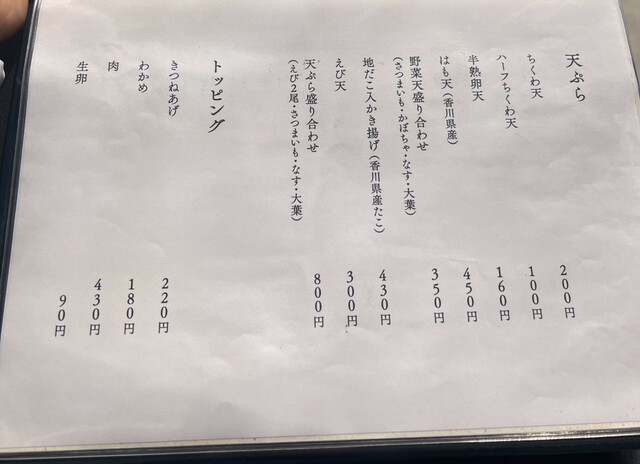 天ぷら
ちくわ天
200円
ハーフちくわ天
100円
半熟卵天
160円
はも天（香川県産）
450円
野菜天盛り合わせ
（さつまいも・かぼちゃ・なす・大葉）
350円
地だこ入かき揚げ（香川県産たこ）
430円
えび天
300円
天ぷら盛り合わせ
（えび2尾・さつまいも・なす・大葉）
800円
トッピング
きつねあげ
220円
わかめ
180円
肉
430円
生卵
90円